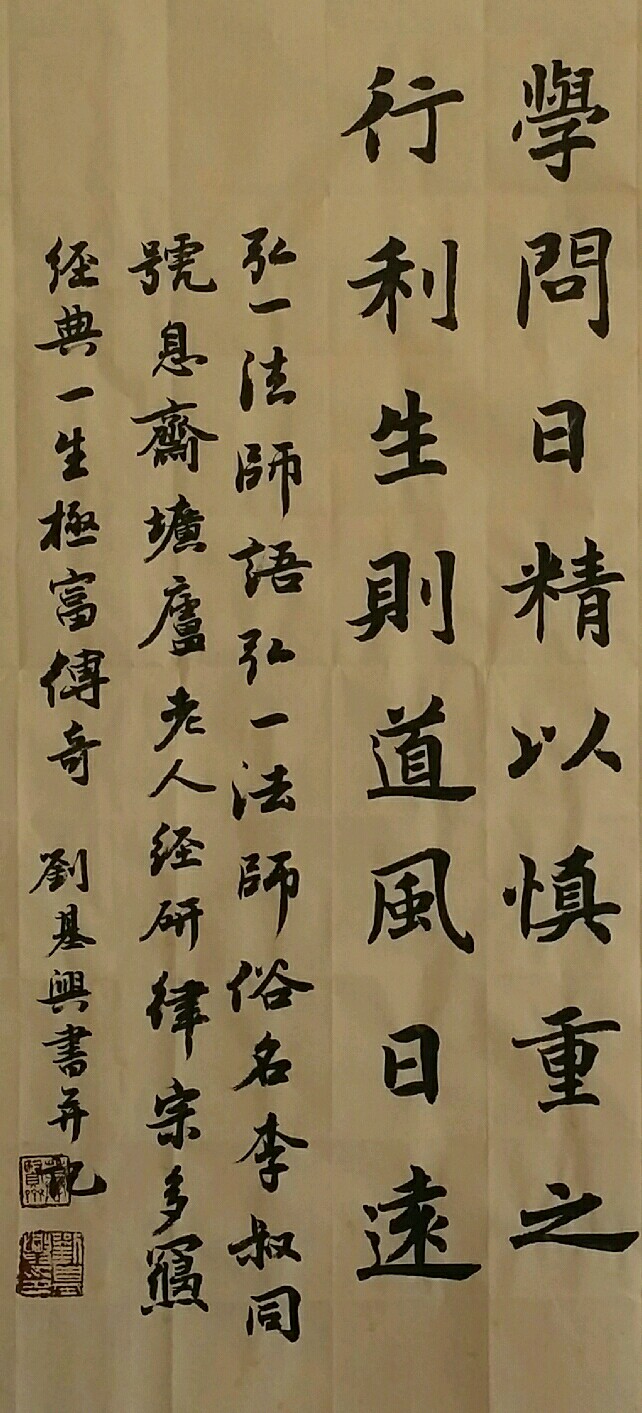 學問日精以慎重之
行利生則道風日遠
弘一法師語弘一法師俗名李叔同
號息齋壙廬老人经研律宗多窺
经典一生極富傳奇 劉基興書并記